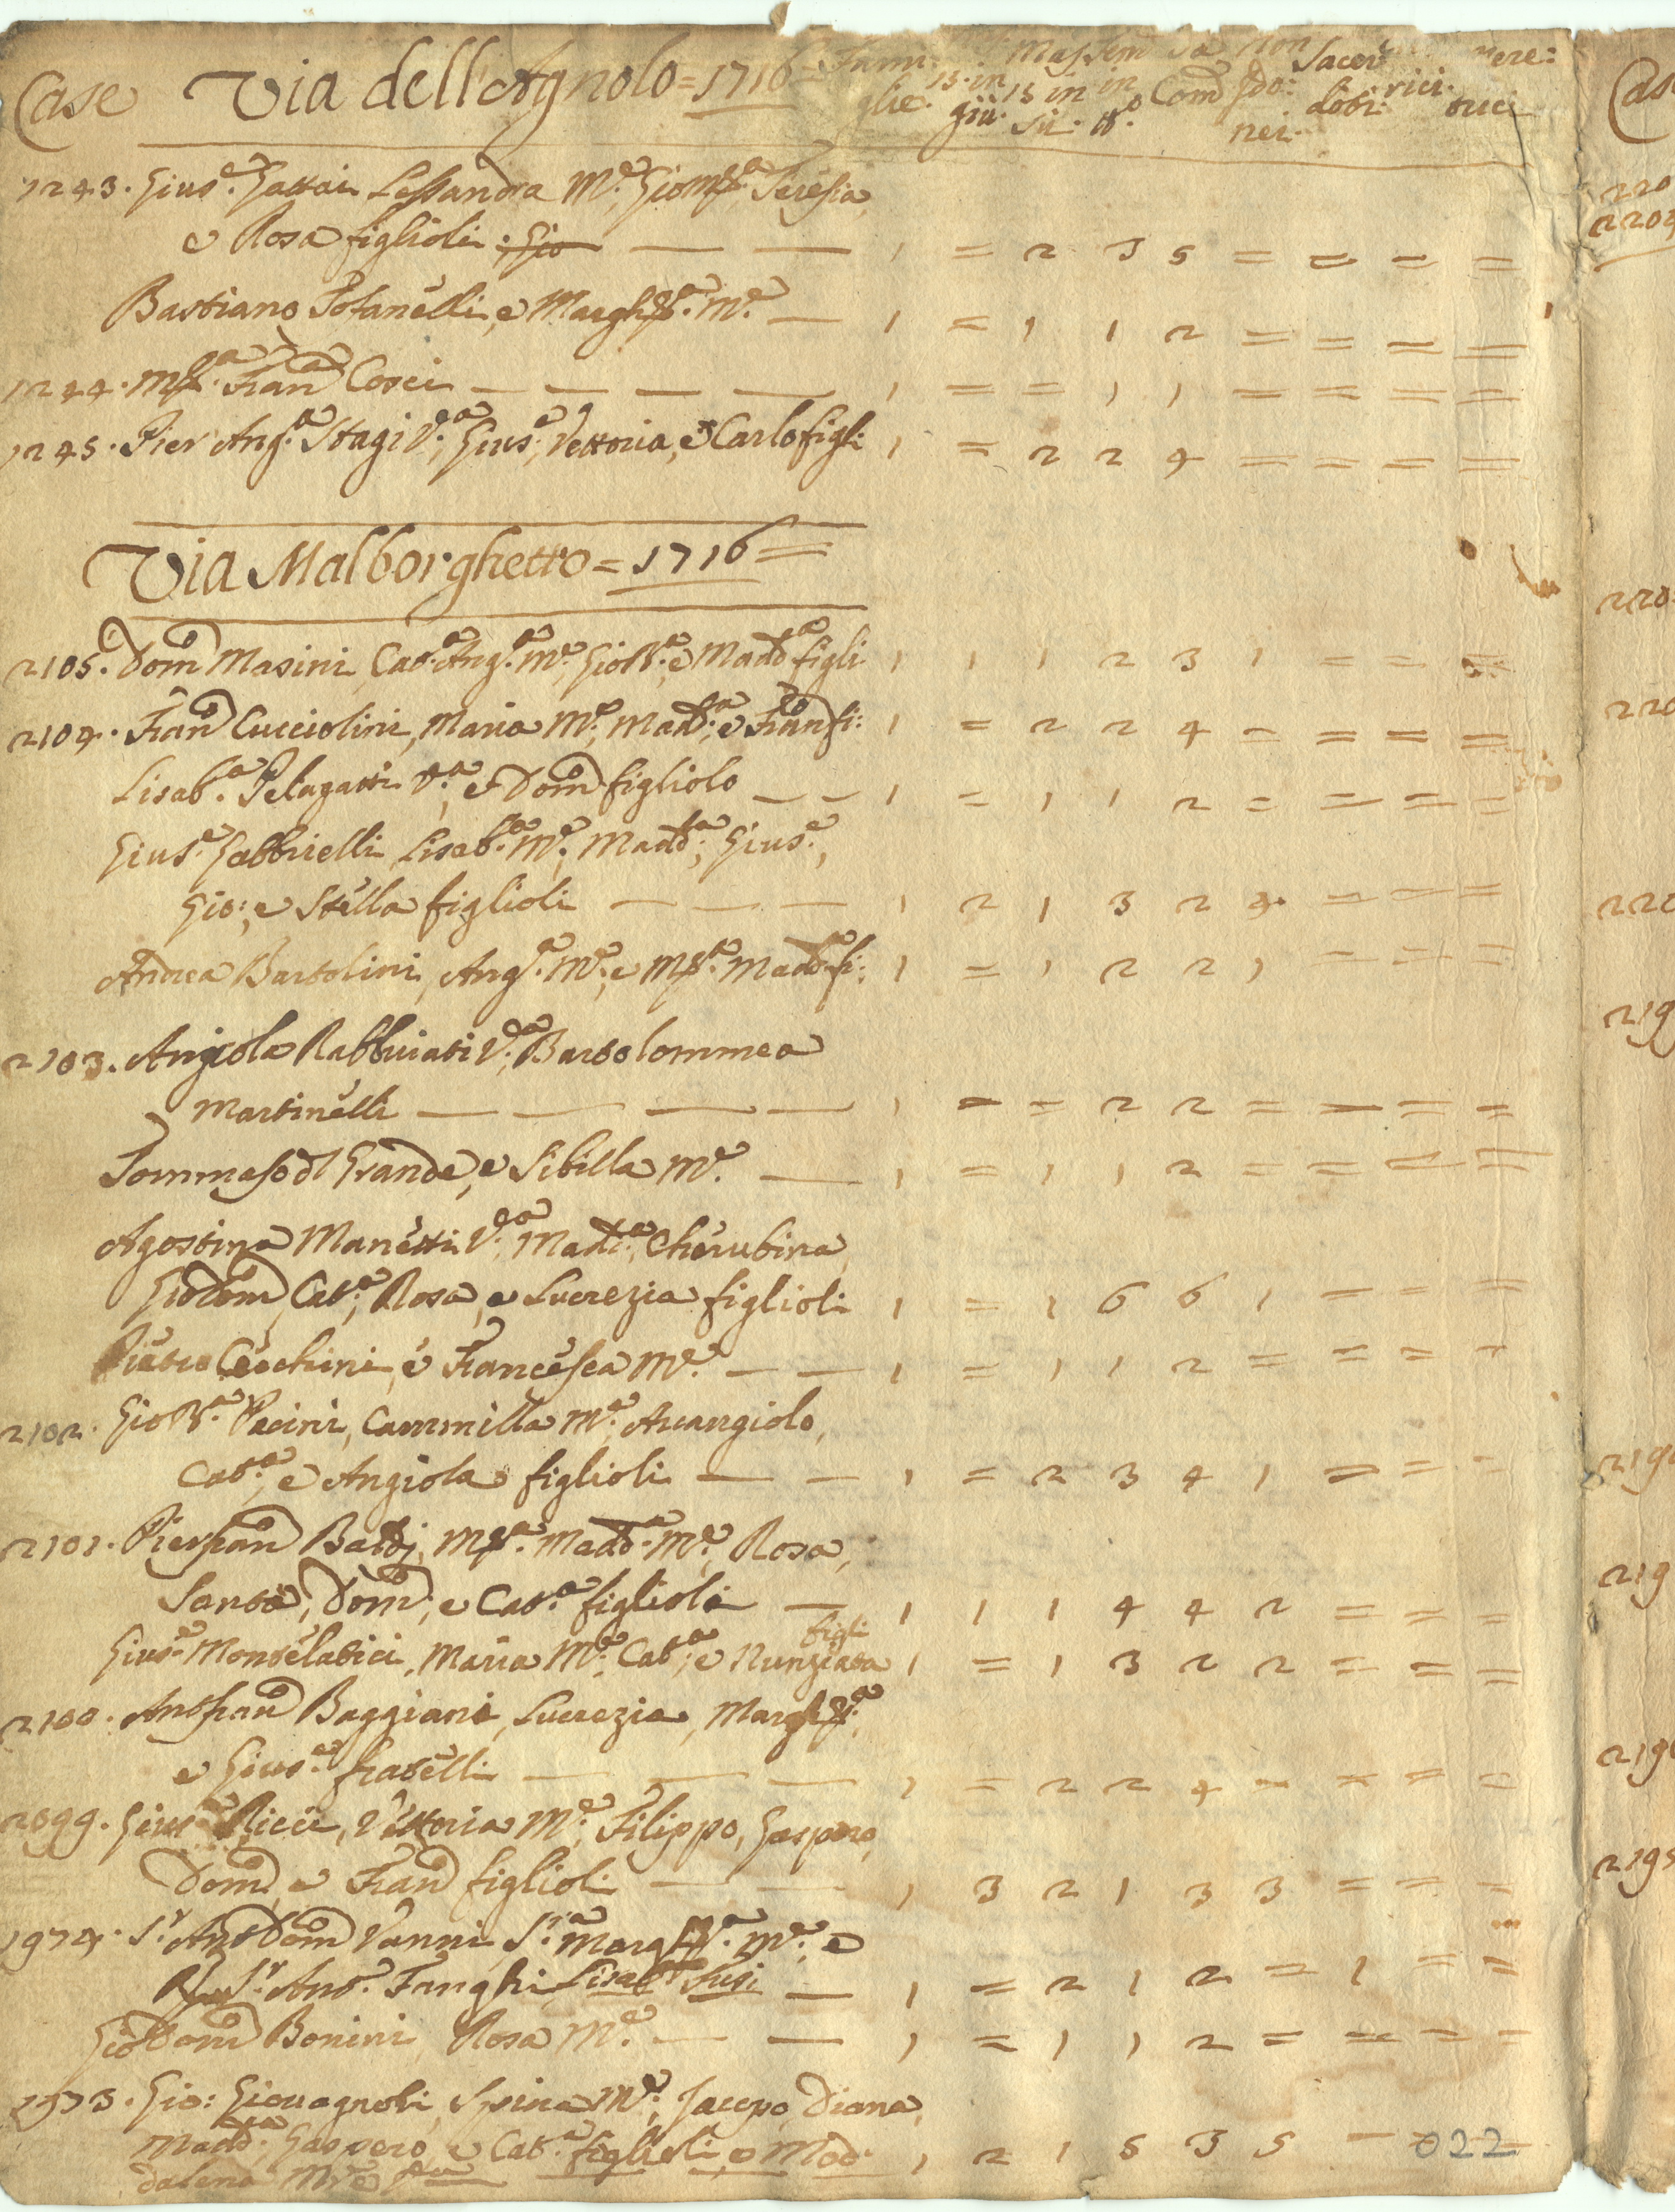 Case Via dell'Agnolo = 1716 = Fami: glie. 13. in giù. Mas 13 in sù. fem in n.o Com non ido: nei. Sacer doti. rici. mere: trici
1243. Gius.e Gattai Lessandra M.e, Gio: Teresia,
e Rosa figlioli. Gio — — 1 = 2 3 5 = = = =
Bastiano Tofanelli, e Margh.ta M.e — 1 = 1 1 2 = = = =
1244. Fran.o Cosci — — — — 1 = = 1 1 = = = =
1245. Pier Ang.o Stagi V.o, Gius.e, Vettoria, e Carlo figli 1 = 2 2 4 = = = =
Via Malborghetto = 1716 =
2105. Dom.o Masini, Cat.a Ang.a M.e, Gio B.a, e Madd.a figli 1 1 1 2 3 1 = = =
2104. Fran.o Cucciolini, Maria M.e, Madd.a, e Fran.o fi: 1 = 2 2 4 = = = =
Lisab.a Pelagatti V.a, e Dom.o figliolo — — 1 = 1 1 2 = = = =
Gius.e Gabbrielli, Lisab.a M.e, Madd.a, Gius.e,
Gio:, e Stella figlioli — — — 1 2 1 3 2 4 = = =
Andrea Bartolini, Ang.a M.e, e M Madd.a fi: 1 = 1 2 2 1 = = =
2103. Angiola Rabbuiati V.a, Bartolommea
Martinelli — — — — 1 = = 2 2 = = = =
Tommaso del Grande, e Sibilla M.e — 1 = 1 1 2 = = = =
Agostina Manetti V.a, Madd.a, Cherubina,
Gio Dom.o, Cat.a, Rosa, e Lucrezia figlioli 1 = 1 6 6 1 = = =
Pietro Cecchini, e Francesca M.e — — 1 = 1 1 2 = = = =
2102. Gio B.a Pacini, Cammilla M.e, Arcangiolo,
Cat.a, e Angiola figlioli — — 1 = 2 3 4 1 = = =
2101. Pier Fran.o Baldi, M Madd.a M.e, Rosa,
Santa, Dom.o, e Cat.a figlioli — 1 1 1 4 4 2 = = =
Gius.e Monselatici, Maria M.e, Cat.a, e Nunziata figli 1 = 1 3 2 2 = = =
2100. Ant Fran.o Baggiani, Lucrezia, Margh.ta,
e Gius.e fratelli — — — 1 = 2 2 4 = = = =
2099. Gius.e Ricci, Vettoria M.e, Filippo, Gaspero,
Dom.o, e Fran.o figlioli — — 1 3 2 1 3 3 = = =
1974. S.r Ant Dom.o Vanni, S.ra Margh.ta M.e, e
S.r Ant.o Fanghi Lisab.a Susi — 1 = 2 1 2 = 1 = =
Gio Dom.o Bonini, Rosa M.e — — 1 = 1 1 2 = = = =
1973. Gio: Giovagnoli, Spina M.e, Jacopo, Diana,
Madd.a, Gaspero, e Cat.a figlioli, e Mad: 1 2 1 5 3 5 = = =
dalena M.re
022